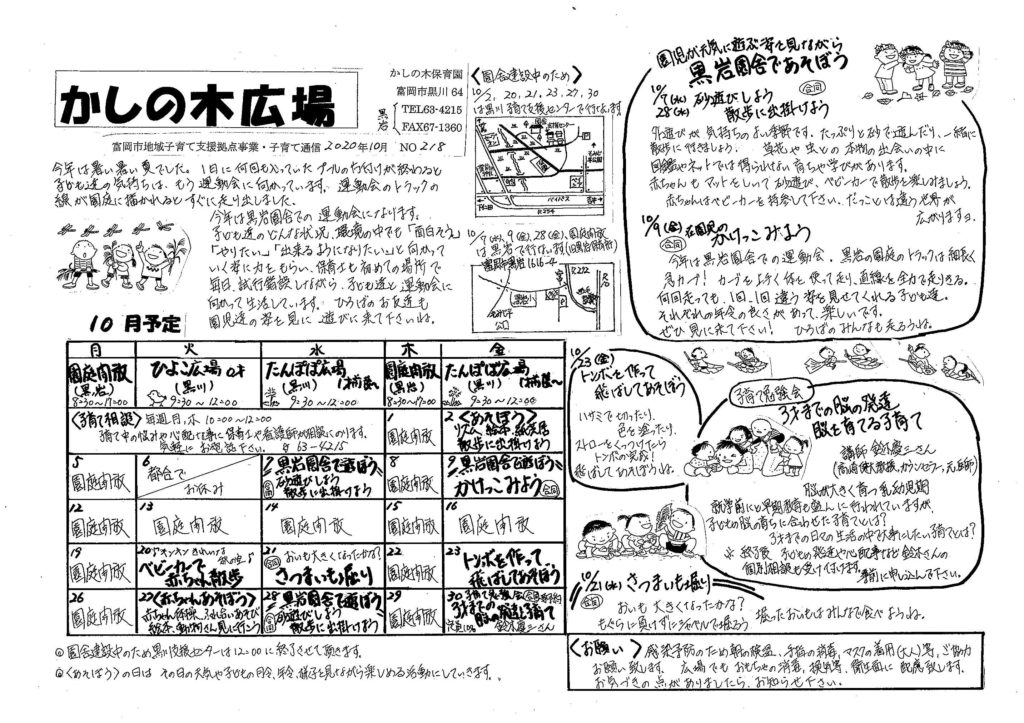 かしの木広場
かしの木保育園
富岡市黒川64
黒岩
TEL63-4215
FAX67-1360
富岡市地域子育て支援拠点事業・子育て通信 2020年10月 NO218
今年は暑い暑い夏でした。1日に何回も入っていたプールの片付けが終わると
子ども達の気持ちは、もう運動会に向かっています。運動会のトラックの
線が園庭に描かれるとすぐに走り出しました。
今年は黒岩園舎での運動会になります。
子ども達のどんな状況、環境の中でも「面白そう」
「やりたい」「出来るようになりたい」と向かって
いく姿に力をもらい、保育士も初めての場所で
毎日、試行錯誤しながら、子ども達と運動会に
向かって生活しています。ひろばのお友達も
園児達の姿を見に遊びに来て下さいね。
<園舎建設中のため>
10/2, 20, 21, 23, 27, 30
は黒川子育て支援センターで行ないます
バイパス
R254
10/7(水), 9(金), 28(水), 園庭開放
は黒岩で行ないます(旧黒岩保育所)
富岡市黒岩1616-4
黒岩小
公園
10月予定
月 火 水 木 金
園庭開放 (黒岩) 8:30〜17:00
ひよこ広場 0才 (黒川) 9:30〜12:00
たんぽぽ広場 (黒川) 1才前後〜 9:30〜12:00
園庭開放 (黒岩) 8:30〜17:00
たんぽぽ広場 (黒川) 1才前後〜 9:30〜12:00
<子育て相談> 毎週月,木 10:00〜12:00
子育て中の悩みや心配な事に保育士や看護師が相談にのります。
気軽にお電話下さい。 63-4215
1 園庭開放
2 <あそぼう>
リズム、絵本、紙芝居
散歩に出掛けよう
5 園庭開放
6 都合で
お休み
7 黒岩園舎で遊ぼう
合同 砂遊びしよう
散歩に出掛けよう
8 園庭開放
9 黒岩園舎で遊ぼう
かけっこみよう 合同
12 園庭開放
13 園庭開放
14 園庭開放
15 園庭開放
16 園庭開放
19 園庭開放
20
ベビーカーで
赤ちゃん散歩
21 おいも大きくなったかな?
合同 さつまいも堀り
22 園庭開放
23 トンボを作って
飛ばしてあそぼう
26 園庭開放
27 <赤ちゃんあそぼう>
28 黒岩園舎で遊ぼう
合同 砂遊びしよう
散歩に出掛けよう
29 園庭開放
30 子育て勉強会
3才までの
脳の発達と子育て
鈴木慶三さん
◎ 園舎建設中のため黒川支援センターは12:00に終了させて頂きます。
◎ <あそぼう>の日は その日の天気や子どもの月令、年令、様子を見ながら楽しめる活動にしていきます。
園児が元気に遊ぶ姿を見ながら
黒岩園舎であそぼう
10/7(水) 28(水) 砂遊びしよう 合同
散歩に出掛けよう
外遊びが気持ちのよい季節です。たっぷりと砂で遊んだり、一緒に
散歩に行きましょう。 草花や虫との本物の出会いの中に
図鑑やネットでは得られない育ちや学びがあります。
赤ちゃんもマットをしいて砂遊び、ベビーカーで散歩を楽しみましょう。
赤ちゃんはベビーカーを持参して下さい。だっことは違う世界が
広がりますヨ。
10/9(金) 合同 在園児の
かけっこみよう
今年は黒岩園舎での運動会、黒岩の園庭のトラックは細長く
急カーブ! カーブを上手く体を使って走り、直線を全力で走りきる。
何回走っても、1回、1回違う姿を見せてくれる子ども達。
それぞれの年令の良さがあって、楽しいです。
ぜひ見に来て下さい! ひろばのみんなも走ろうね。
10/23(金)
トンボを作って
飛ばしてあそぼう
ハサミで切ったり、
色を塗ったり、
ストローをくっつけたら
トンボの完成!
飛ばしてあそぼうね。
子育て勉強会
3才までの脳の発達
脳を育てる子育て
講師 鈴木慶三さん
脳が大きく育つ乳幼児期
就学前にと早期教育も盛んに行われていますが、
子どもの脳の育ちに合わせた子育てとは?
3才までの日々の生活の中で大事にしたい子育てとは?
※ 終了後 子どもの発達や心配事など鈴木さんの
個別相談も受け付けます。
事前に申し込んで下さい。
10/21(水) さつまいも堀り
合同
おいも大きくなったかな?
もぐらに負けずにシャベルで掘ろう
掘ったおいもはみんなで食べようね。
<お願い> 感染予防のため朝の検温、手指の消毒、マスクの着用(大人)等、ご協力
お願い致します。 広場でもおもちゃの消毒、換気等、衛生面に配慮致します。
お気づきの点がありましたら、お知らせ下さい。